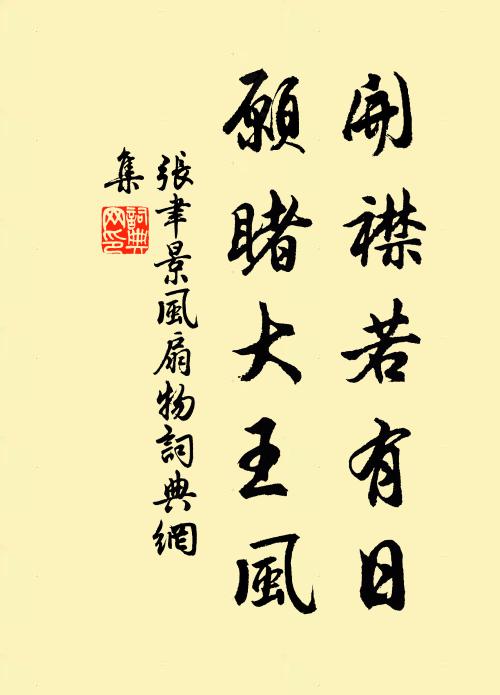 開襟若有日
願睹大王風
張聿景風扇物詞典網
集
詞典網印